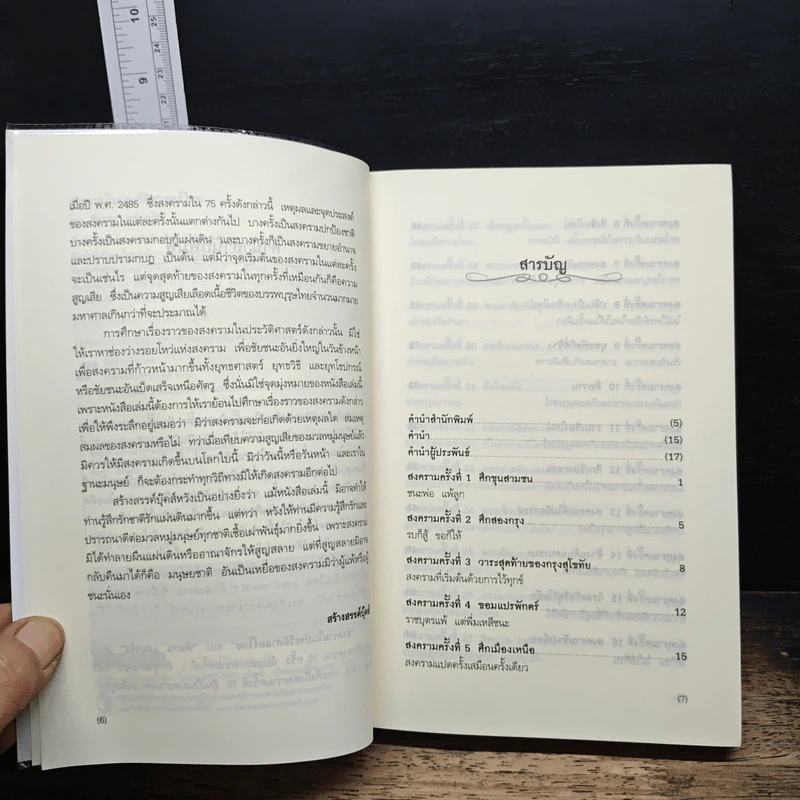 10
9
25
24
23
22
21
เมื่อปี พ.ศ. 2485 ซึ่งสงครามใน 75 ครั้งดังกล่าวนี้ เหตุผลและจุดประสงค์
ของสงครามในแต่ละครั้งนั้นแตกต่างกันไป บางครั้งเป็นสงครามปกป้องชาติ
บางครั้งเป็นสงครามกอบกู้แผ่นดิน และบางครั้งก็เป็นสงครามขยายอำนาจ
และปราบปรามกบฏ เป็นต้น แต่มิว่าจุดเริ่มต้นของสงครามในแต่ละครั้ง
จะเป็นเช่นไร แต่จุดสุดท้ายของสงครามในทุกครั้งที่เหมือนกันก็คือความ
สูญเสีย ซึ่งเป็นความสูญเสียเลือดเนื้อชีวิตของบรรพบุรุษไทยจำนวนมากมาย
มหาศาลเกินกว่าที่จะประมาณได้
การศึกษาเรื่องราวของสงครามในประวัติศาสตร์ดังกล่าวนั้น มิใช่
ให้เราหาช่องว่างรอยโหว่แห่งสงคราม เพื่อชัยชนะอันยิ่งใหญ่ในวันข้างหน้า
เพื่อสงครามที่ก้าวหน้ามากขึ้นทั้งยุทธศาสตร์ ยุทธวิธี และยุทโธปกรณ์
หรือชัยชนะอันเบ็ดเสร็จเหนือศัตรู ซึ่งนั่นมิใช่จุดมุ่งหมายของหนังสือเล่มนี้
เพราะหนังสือเล่มนี้ต้องการให้เราย้อนไปศึกษาเรื่องราวของสงครามดังกล่าว
เพื่อให้พึงระลึกอยู่เสมอว่า มิว่าสงครามจะก่อเกิดด้วยเหตุผลใด สมเหตุ
สมผลของสงครามหรือไม่ ทว่าเมื่อเทียบความสูญเสียของมวลหมู่มนุษย์แล้ว
มิควรให้มีสงครามเกิดขึ้นบนโลกใบนี้ มิว่าวันนี้หรือวันหน้า และเราใน
ฐานะมนุษย์ ก็จะต้องกระทำทุกวิถีทางมิให้เกิดสงครามอีกต่อไป
สร้างสรรค์บุ๊คส์หวังเป็นอย่างยิ่งว่า แม้หนังสือเล่มนี้ มิอาจทำให้
ท่านรู้สึกรักชาติรักแผ่นดินมากขึ้น แต่ทว่า หวังให้ท่านมีความรู้สึกรักและ
ปรารถนาดีต่อมวลหมู่มนุษย์ทุกชาติเชื้อเผ่าพันธุ์มากยิ่งขึ้น เพราะสงคราม
มิได้ทำลายผืนแผ่นดินหรืออาณาจักรให้สูญสลาย แต่ที่สูญสลายมิอาจ
กลับคืนมาได้ก็คือ มนุษยชาติ อันเป็นเหยื่อของสงครามมิว่าผู้แพ้หรือผู้
ชนะนั่นเอง
สร้างสรรค์บุ๊คส์
(6)
สารบัญ
คำนำสำนักพิมพ์ (5)
คำนำ (15)
คำนำผู้ประพันธ์ (17)
สงครามครั้งที่ 1 ศึกขุนสามชน 1
ชนะพ่อ แพ้ลูก
สงครามครั้งที่ 2 ศึกสองกรุง 5
รบก็สู้ ขอก็ให้
สงครามครั้งที่ 3 วาระสุดท้ายของกรุงสุโขทัย 8
สงครามที่เริ่มต้นด้วยการไว้ทุกข์
สงครามครั้งที่ 4 ขอมแปรพักตร์ 12
ราชบุตรแพ้ แต่พี่มเหสีชนะ
สงครามครั้งที่ 5 ศึกเมืองเหนือ 15
สงครามแปดครั้งเสมือนครั้งเดียว
(7)